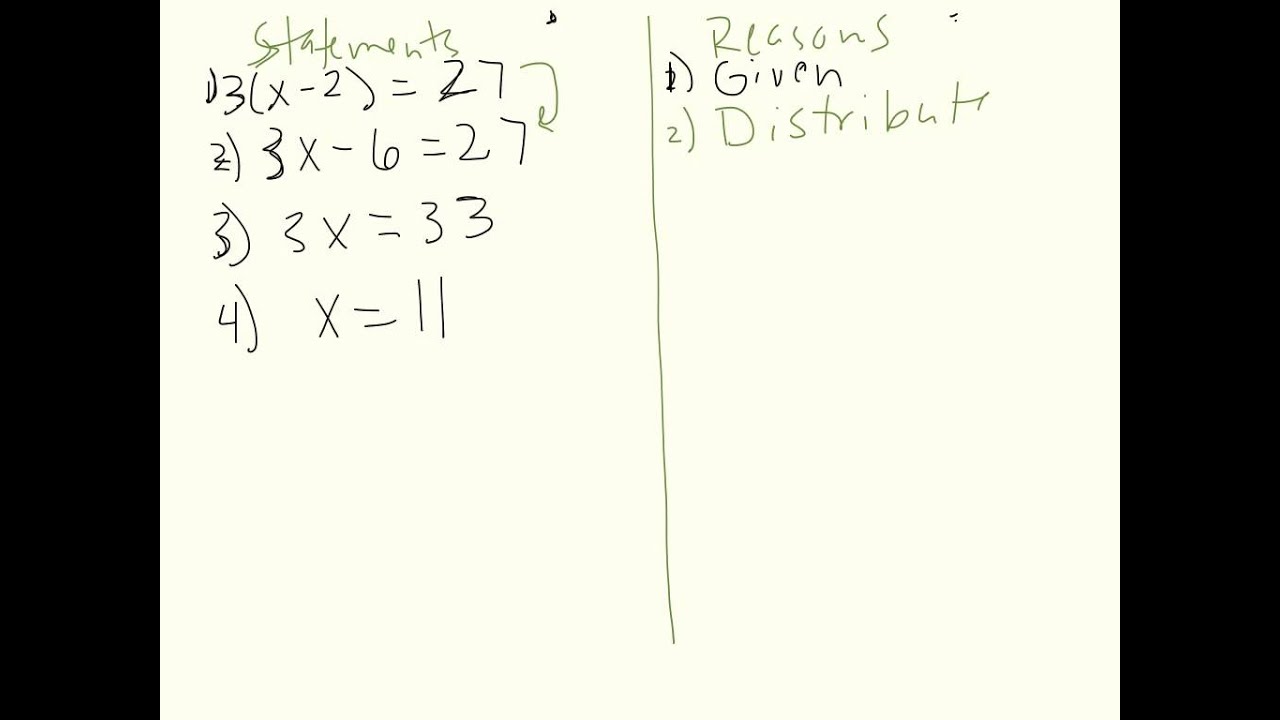 Statements
1) 3(x-2) = 27
2) 3x - 6 = 27
3) 3x = 33
4) x = 11
Reasons
1) Given
2) Distribut